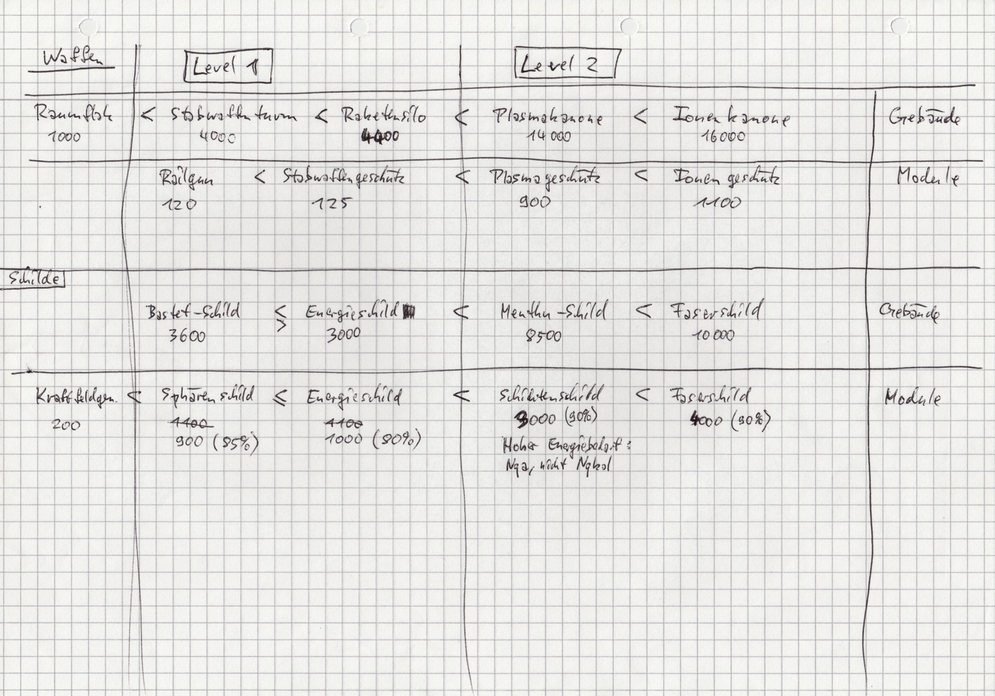 Waffen Level 1 Level 2
Raumflak < Stabwaffenturm < Raketensilo < Plasmakanone < Ionenkanone Gebäude
1000 4000 4400 14000 16000
Railgun < Stabwaffengeschütz < Plasmageschütz < Ionengeschütz Module
120 125 900 1100
Schilde
Bastet-Schild ≤ Energieschild < Menthu-Schild < Faserschild Gebäude
>
3600 3000 8500 10000
Kraftfeldgen. < Sphärenschild ≤ Energieschild < Schichtenschild < Faserschild Module
200 1100 1100 3000 (90%) 4000 (90%)
900 (85%) 1000 (80%)
Hoher Energiebedarf:
Nqa, nicht Nqkol